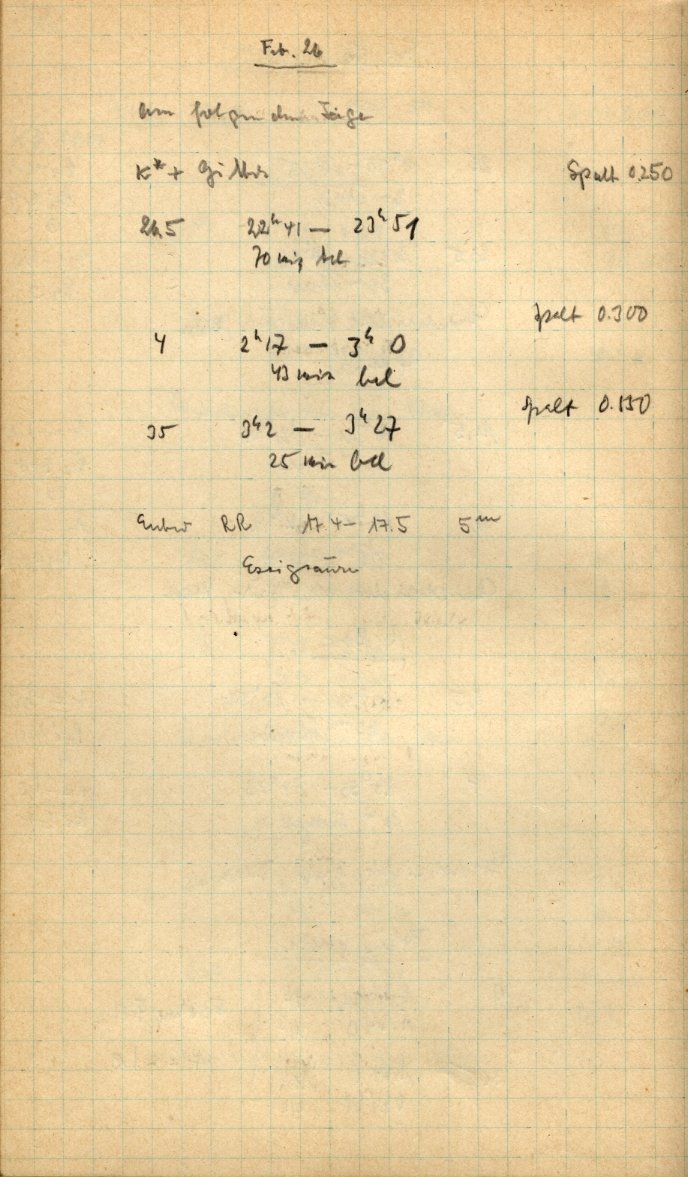 Feb. 26
Am folgenden Tage
K* + Gitter Spalt 0.250
22ʰ41 — 23ʰ51
70 min bel
Spalt 0.300
4 2ʰ17 — 3ʰ 0
43 min bel
Spalt 0.150
35 3ʰ2 — 3ʰ27
25 min bel
RR 17.4 — 17.5 5ᵐ
Essigsäure